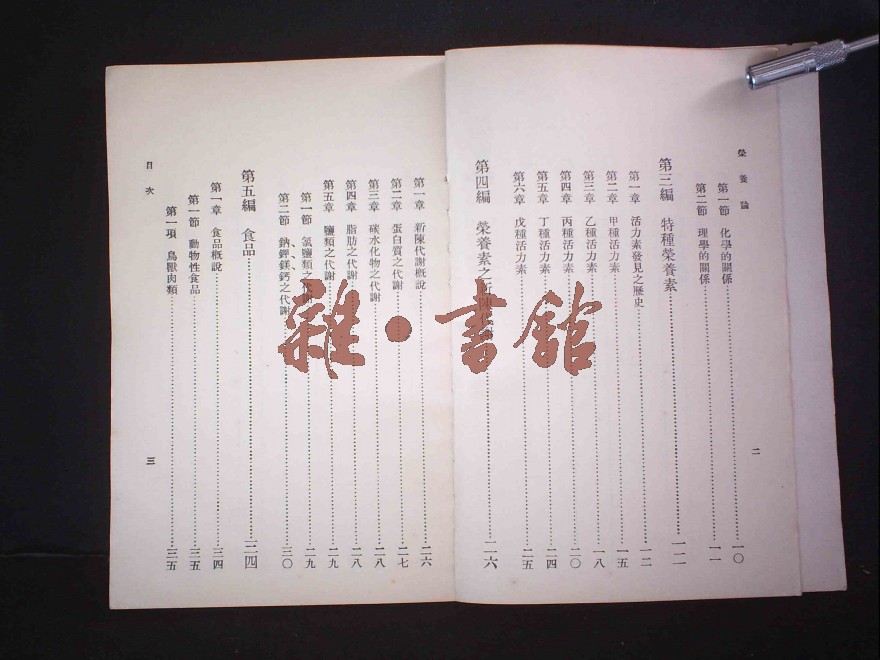 榮養論
第一節 化學的關係 一〇
第二節 理學的關係 一一
第三編 特種榮養素 一二
第一章 活力素發見之歷史 一二
第二章 甲種活力素 一五
第三章 乙種活力素 一八
第四章 丙種活力素 二〇
第五章 丁種活力素 二四
第六章 戊種活力素 二五
第四編 榮養素之新陳代謝 二六
二
第一章 新陳代謝概說 二六
第二章 蛋白質之代謝 二七
第三章 碳水化物之代謝 二八
第四章 脂肪之代謝 二八
第五章 鹽類之代謝 二九
第一節 氯鹽類之代謝 二九
第二節 鈉鉀鎂鈣之代謝 三〇
第五編 食品 三四
第一章 食品概說 三四
第一節 動物性食品 三五
第一項 鳥獸肉類 三五
目次
三
雜·書館